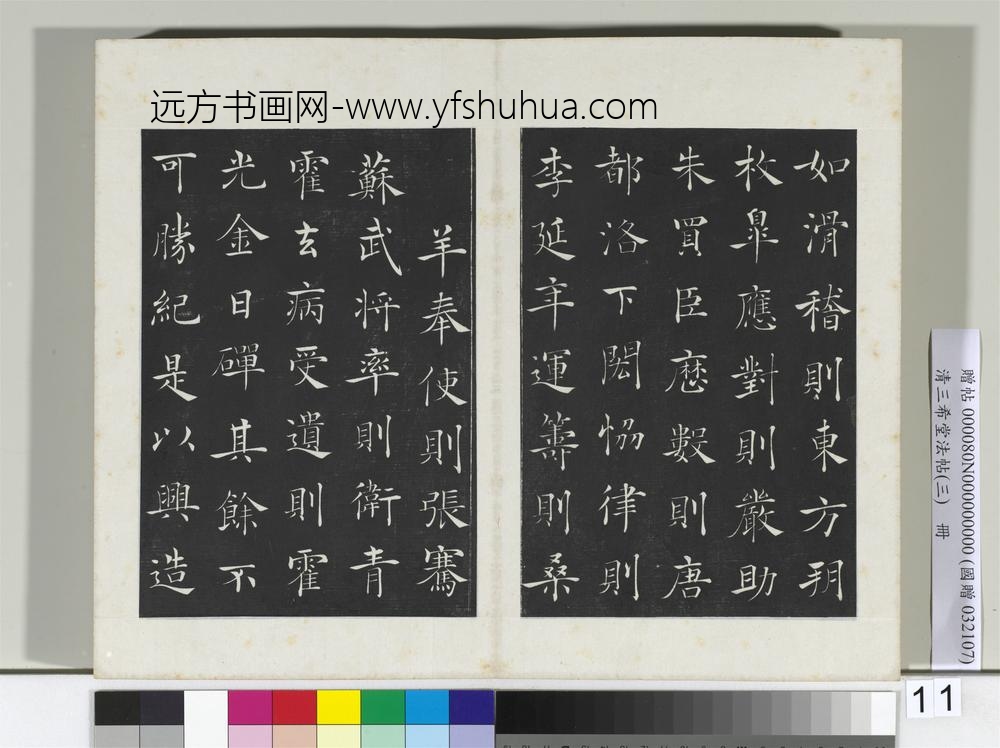 远方书画网-www.yfshuhua.com
如滑稽則東方朔
枚皐應對則嚴助
朱買臣厯數則唐
都洛下閎恊律則
李延年運籌則桑
羊奉使則張騫
蘇武将率則衛青
霍去病受遺則霍
光金日磾其餘不
可勝紀是以興造
贈帖 000080N000000000 (國贈 032107)
清三希堂法帖(三) 冊
11